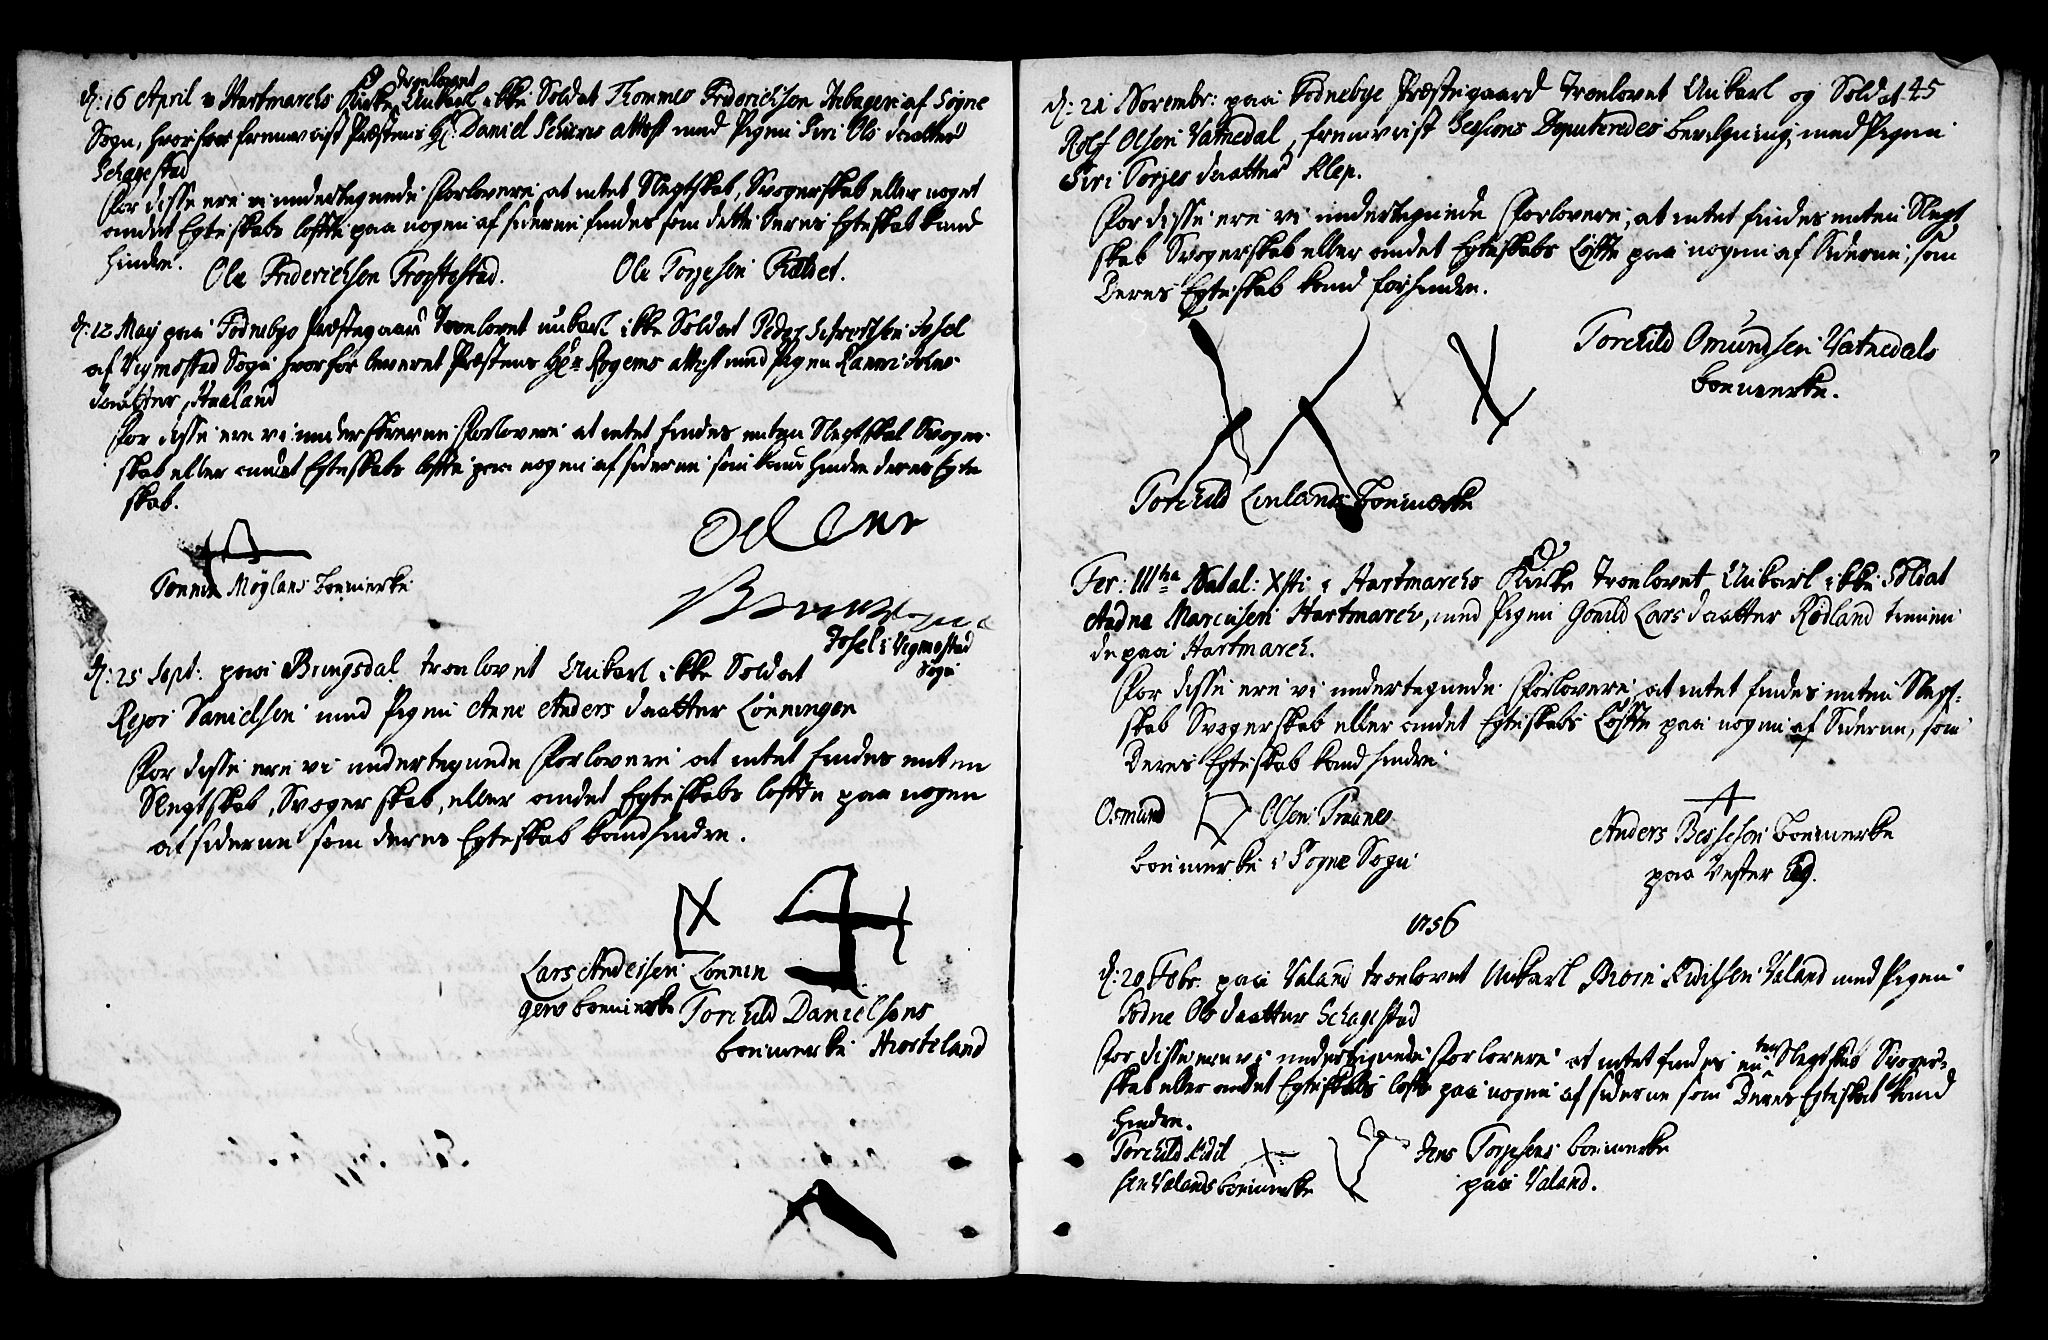 d: 16 April i Hartmarchs Kirke Troelovet Unkarl ikke Soldat Thommes Friderichsen af Sogne
Sogn, hvorfore fremviist Præstens Hr Daniel attest med Pigen Siri Ols daatter
Schagestad
For disse ere vi undertegnede Forlovere, at intet Slegtskab, Svogerskab eller noget
andet Egteskabs løffte paa nogen af siderne findes som dette deres Egteskab kand
hindre.
Ole Friderichsen Ole Torjesen
d: 12 May paa Fodnebye Præstegaard Troelovet unkarl ikke Soldat Peder Josel
af Vigmostad Sogn hvorfor leveret Præstens attest med Pigen
daatter, Haaland
For disse ere vi underskrevne Forlovere at intet findes enten Slegtskab Svoger
skab eller andet Egteskabs løffte paa nogen af siderne som kand hindre deres Egte
skab.
Møglans boemerke
Josel i Vigmostad
Sogn
d: 25 Sept: paa Bringsdal troelovet Unkarl ikke Soldat
Danielsen med Pigen Anne Anders daatter Lønningen
For disse ere vi undertegnede Forlovere at intet findes enten
Slegtskab, Svogerskab, eller andet Egteskabs løffte paa nogen
af siderne som deres Egteskab kand hindre.
Lars Andersen Lønnin
gens boemerke Torchild Danielsens
boemerke Hiorteland
45
d: 21 Novembr: paa Fodnebye Præstegaard Troelovet Unkarl og Soldat
Rolf Olsen Vatnedal, fremviist Sessions Deputeredes bevilgning, med Pigen
Siri Torjes daatter Klep.
For disse ere vi undertegnede Forlovere, at intet findes enten Slegt
skab Svogerskab eller andet Egteskabs Løffte paa nogen af Siderne, som
Deres Egteskab kand forhindre.
Torchild Omundsen Vatnedals
boemerke.
Torchild boemerke
Fer: IIItia Natal: Xsti i Hartmarchs Kirke Troelovet Unkarl ikke Soldat
Andne Marcusen Hartmarch, med Pigen Gonild Lars daatter Rødland tienen
de paa Hartmarch.
For disse ere vi undertegnede Forlovere, at intet findes enten Slegt-
skab Svogerskab eller andet Egteskabs Løffte paa nogen af Siderne, som
Deres Egteskab kand hindre
Osmund Olsen Tranes
boemerke i Sogne Sogn
Anders boemerke
paa Vester
1756
d: 20 Febr. paa Valand troelovet Unkarl Valand med Pigen
Ols daatter Schagestad
For disse ere vi undertegnede Forlovere at intet findes enten Slegtskab Svoger-
skab eller andet Egteskabs løffte paa nogen af siderne som Deres Egteskab kand
hindre.
Torchild
sen Valands boemerke
Jens Torjesens boemerke
paa Valand.